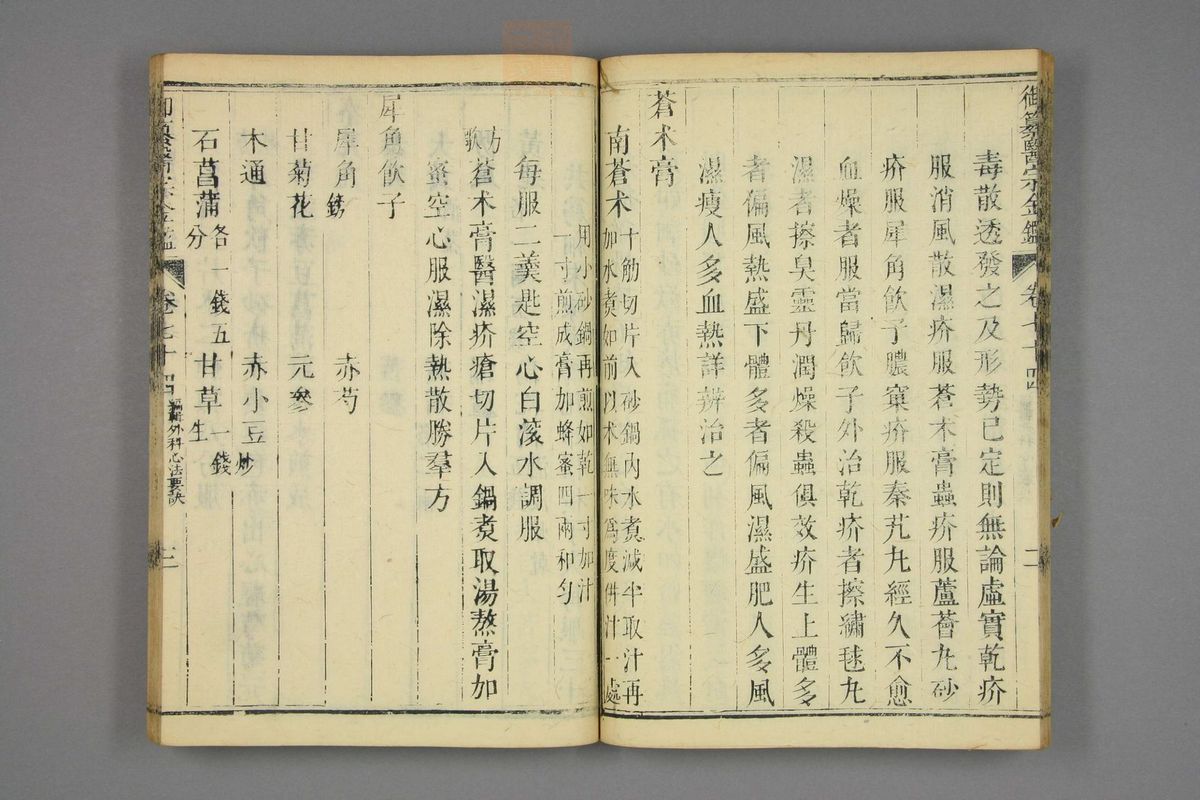 御纂醫宗金鑑
卷七十四
二
毒散透發之及形勢已定則無論虛實乾疥
服消風散濕疥服蒼朮膏蟲疥服蘆薈丸砂
疥服犀角飲子膿窠疥服秦艽丸經久不愈
血燥者服當歸飲子外治乾疥者擦繡毬丸
濕者擦臭靈丹潤燥殺蟲俱效疥生上體多
者偏風熱盛下體多者偏風濕盛肥人多風
濕瘦人多血熱詳辨治之
蒼朮膏
南蒼朮十觔切片入砂鍋內水煮減半取汁再
如水煮如前以朮無味為度併汁一處
用小砂鍋再煎如乾一寸加汁
一寸煎成膏加蜂蜜四兩和勻
每服二羹匙空心白滾水調服
方歌
蒼朮膏醫濕疥瘡切片入鍋煮取湯熬膏加
蜜空心服濕除熱散勝羣方
犀角飲子
犀角鎊 赤芍
甘菊花 元參
木通 赤小豆炒
石菖蒲各一錢五分 甘草生一錢
御纂醫宗金鑑
卷七十四
編輯外科心法要訣
三